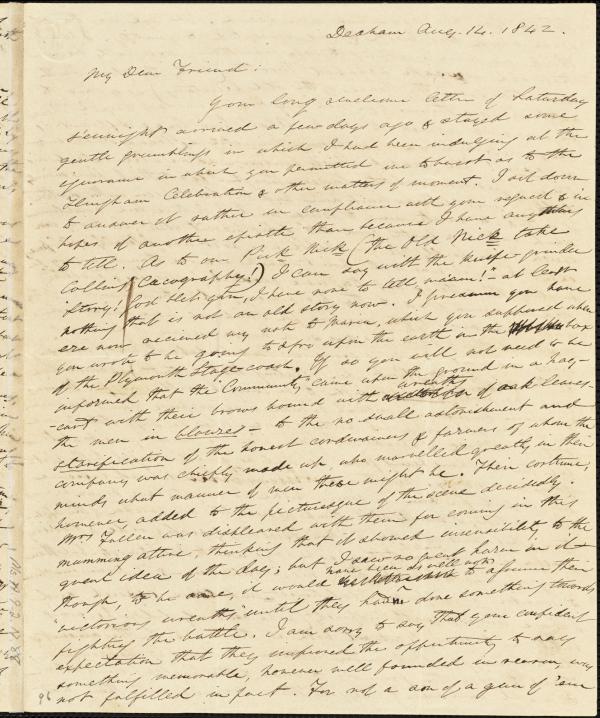 Dedham Aug. 14. 1842.
My Dear Friend:
Your long & welcome letter of Saturday
sennight arrived a few days ago & stayed some
gentle grumblings in which I had been indulging at the
ignorance in which you permitted me to burst as to the
Hingham Celebration & other matters of moment. I sit down
to answer it rather in compliance with your request & in
hopes of another epistle than because I have anything
to tell. As to our Pick Nick (the Old Nick take
Collins' Cacography!) I can say with the knife-grinder
"Story! God bless you, I have none to tell, ma'am!" at least
nothing that is not an old story now. I presume you have
ere now received my note to Maria, which you supposed when
you wrote to be going to & fro upon the earth in the box
of the Plymouth Stage-coach. If so you will not need to be
informed that the "Community" came upon the ground in a hay-
-cart with their brows bound with wreaths of oak leaves-
the men in blouses - to the no small astonishment and
starification of the honest cordwainers & farmers of whom the
company was chiefly made up, who marvelled greatly in their
minds what manner of men these might be. Their costume,
however, added to the picturesque of the scene decidedly.
Mrs Follen was displeased with them for coming in this
mumming attire, thinking that it showed insensibility to the
great idea of the day; but I saw no great harm in it -
though, to be sure, it would have been as well not to assume their
"victorious wreaths" until they had done something towards
fighting the battle. I am sorry to say that your confident
expectation that they improved the opportunity to say
something memorable, however well founded in reason, was
not fulfilled in fact. For not a son of a gun of 'em
96